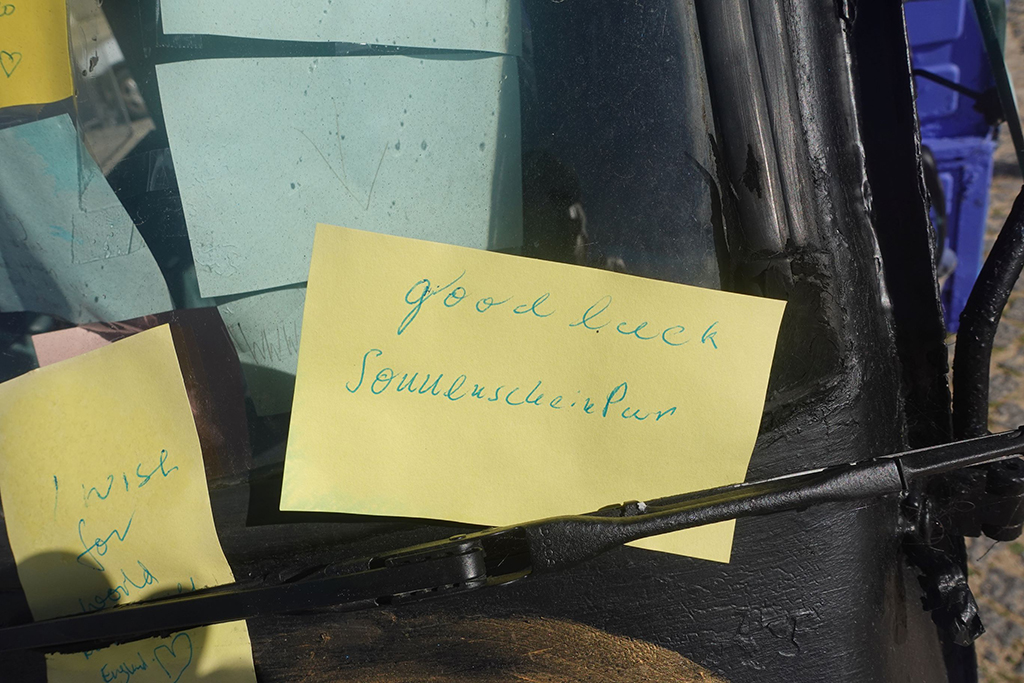 good luck
SonnenscheinPur
I wish
for
world
England